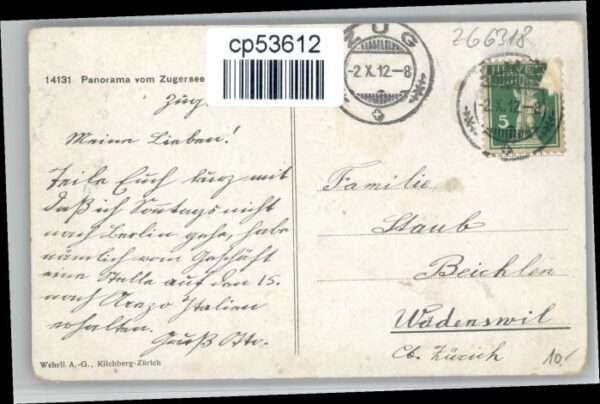 cp53612
266318
ZUG
-2.X.12-8
HELVETIA
-2.X.12-8
5
14131 Panorama vom Zugersee
Zug.
Meine Lieben!
Teile Euch kurz mit
daß ich Sontags nicht
nach Berlin gehe, habe
nämlich vom Geschäft
eine Stelle auf den 15.
nach Arezo Italien
erhalten.
Gruß Otto.
Familie
Staub
Beichlen
Wädenswil
Ct. Zürich
10.-
Wehrli A.-G., Kilchberg-Zürich